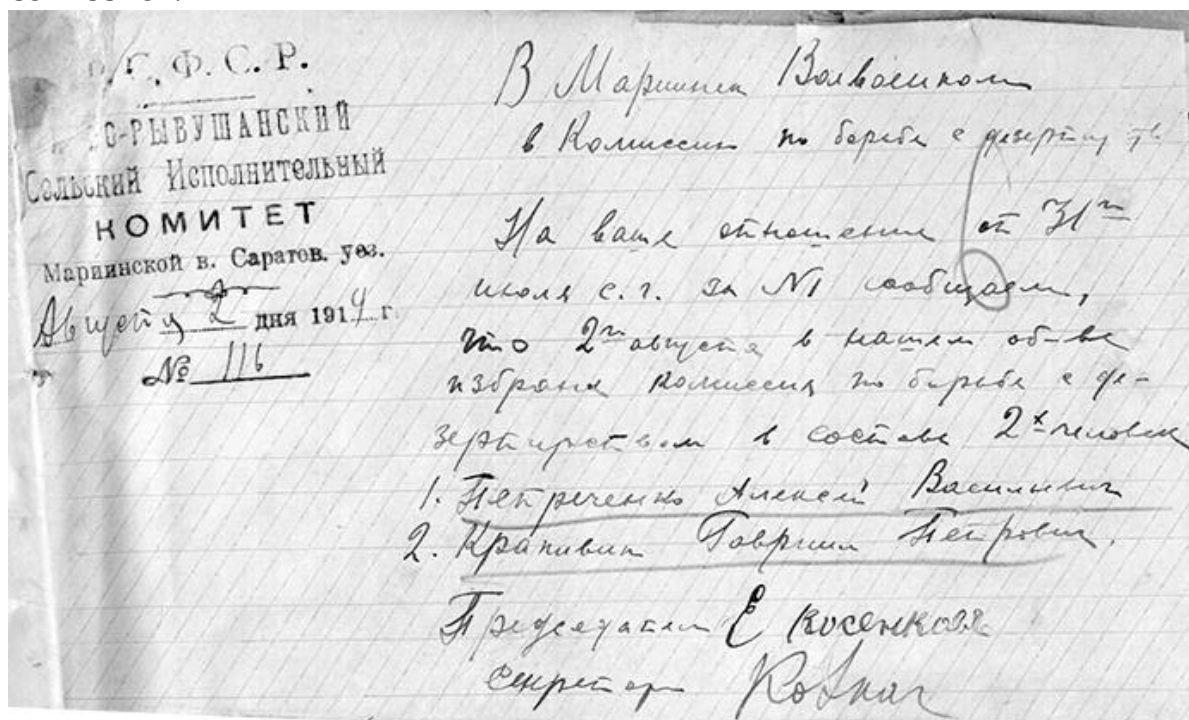 Р.С.Ф.С.Р.
О-РЫБУШАНСКИЙ
Сельский Исполнительный
КОМИТЕТ
Мариинской в. Саратов. уез.
Августа 2 дня 1919 г.
№ 116
В Мариинск Волвоенком
в Комиссию по борьбе с дезертирств
На ваше отношение от 31го
июля с.г. за №1 сообщаем,
что 2го августа в нашем об-ве
избрана комиссия по борьбе с де-
зертирством в составе 2х человек
1. Петреченко Алексей Васильевич
2. Крапивин Гавриил Петрович.
Председатель Е Косенков
Секретарь